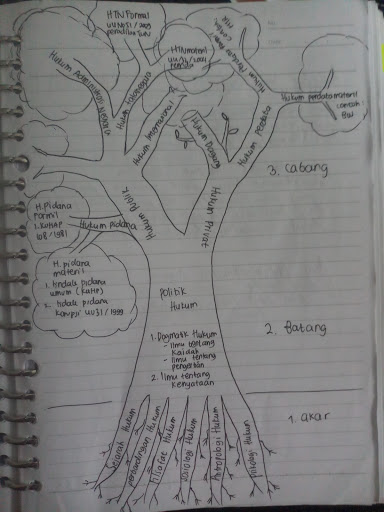 HTN Formal
UU No 51 / 2009
Peradilan TUN
HTN materil
UU 32 / 2004
Pemda
Hukum Administrasi Negara
Hukum tatanegara
Hukum Internasional
Hukum Dagang
Hukum Perdata
Hukum Perdata materil
contoh:
BW
3. Cabang
Hukum Publik
Hukum Privat
H. Pidana
Formil
1. KUHAP
Hukum pidana
H. pidana
materil
1. tindak pidana
umum (KUHP)
2. tindak pidana
Korupsi UU 31 / 1999
Politik
Hukum
1. Dogmatik Hukum
- Ilmu tentang
Kaidah
- Ilmu tentang
pengertian
2. Ilmu tentang
Kenyataan
2. Batang
1. akar
Sejarah Hukum
perbandingan Hukum
Filsafat Hukum
Sosiologi Hukum
Antropologi Hukum
Psikologi Hukum